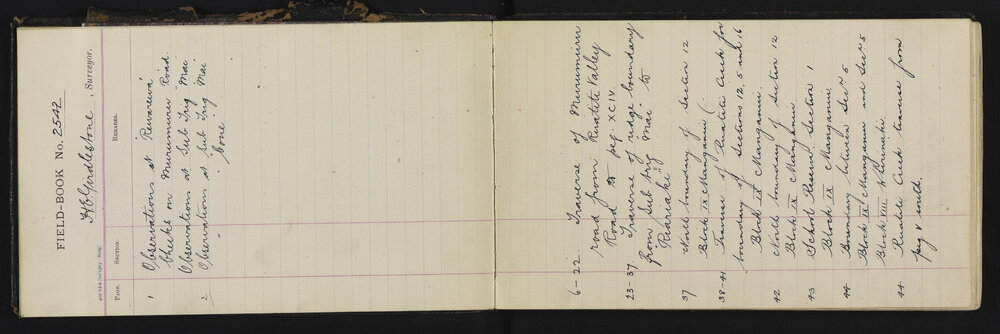 FIELD-BOOK No. 2542
H.E. Girdlestone, Surveyor.
PAGE. SECTION. REMARKS.
1 Observations at Ruwarewa
Checks on Murumuru Road
Observations at Sub Trig Mai
2 Observations at Sub Trig Mai
" Cone
6-22. Traverse of Murumuru
road from Ruatiti Valley
Road to peg XCIV
23-37 Traverse of ridge boundary
from Sub trig Mai to
Riariaki
37 North boundary of Section 12
Block IX Manganui
38-41 Traverse of Ruatiti Creek for
boundary of Sections 12, 5 and 16
Block IX Manganui
42 North boundary of Section 12
Block IX Manganui
43 School Reserve Section 1
Block IX Manganui
44 Boundary between Secn 5
Block IX Manganui and Secn 5
Block VIII
44 Ruatiti Creek traverse from
peg V south.